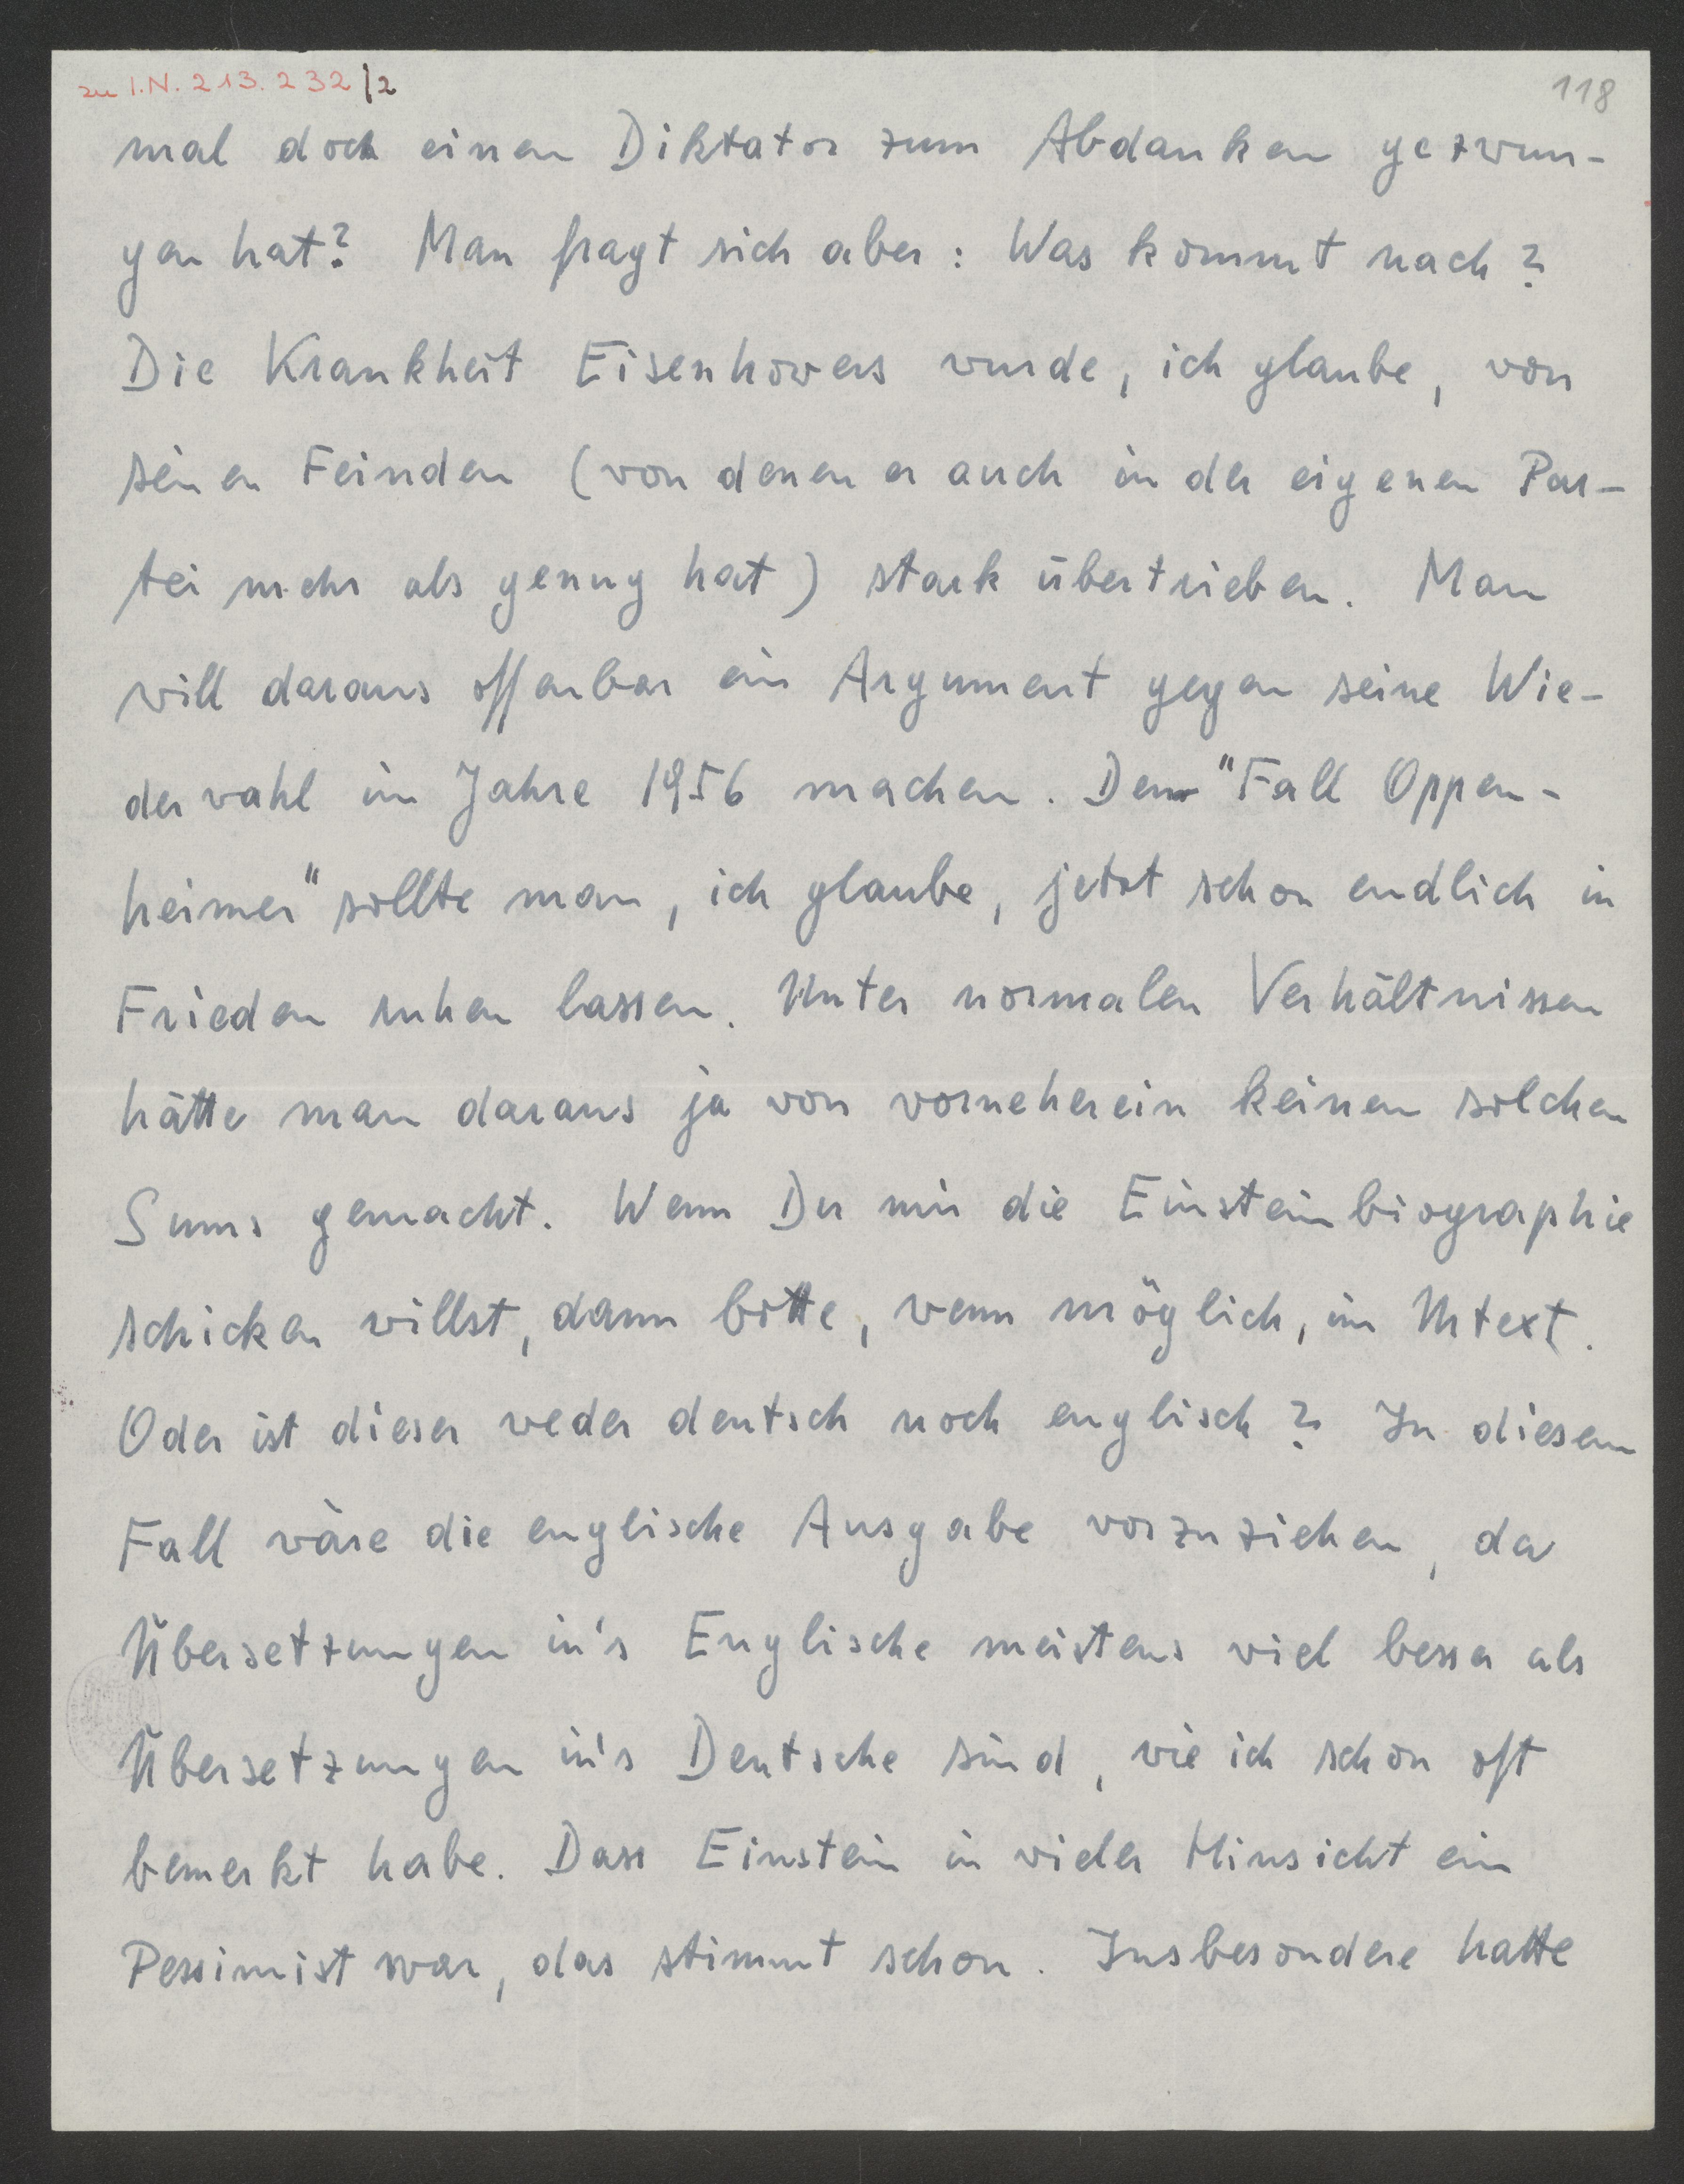 zu I.N. 213.232/2
118
mal doch einen Diktator zum Abdanken gezwun-
gen hat? Man fragt sich aber: Was kommt nach?
Die Krankheit Eisenhowers wurde, ich glaube, von
seinen Feinden (von denen er auch in der eigenen Par-
tei mehr als genug hat) stark übertrieben. Man
will daraus offenbar ein Argument gegen seine Wie-
derwahl im Jahre 1956 machen. Den "Fall Oppen-
heimer" sollte man, ich glaube, jetzt schon endlich in
Frieden ruhen lassen. Unter normalen Verhältnissen
hätte man daraus ja von vorneherein keinen solchen
Sums gemacht. Wenn Du mir die Einsteinbiographie
schicken willst, dann bitte, wenn möglich, im Urtext.
Oder ist dieser weder deutsch noch englisch? In diesem
Fall wäre die englische Ausgabe vorzuziehen, da
Übersetzungen in's Englische meistens viel besser als
Übersetzungen in's Deutsche sind, wie ich schon oft
bemerkt habe. Dass Einstein in vieler Hinsicht ein
Pessimist war, das stimmt schon. Insbesondere hatte